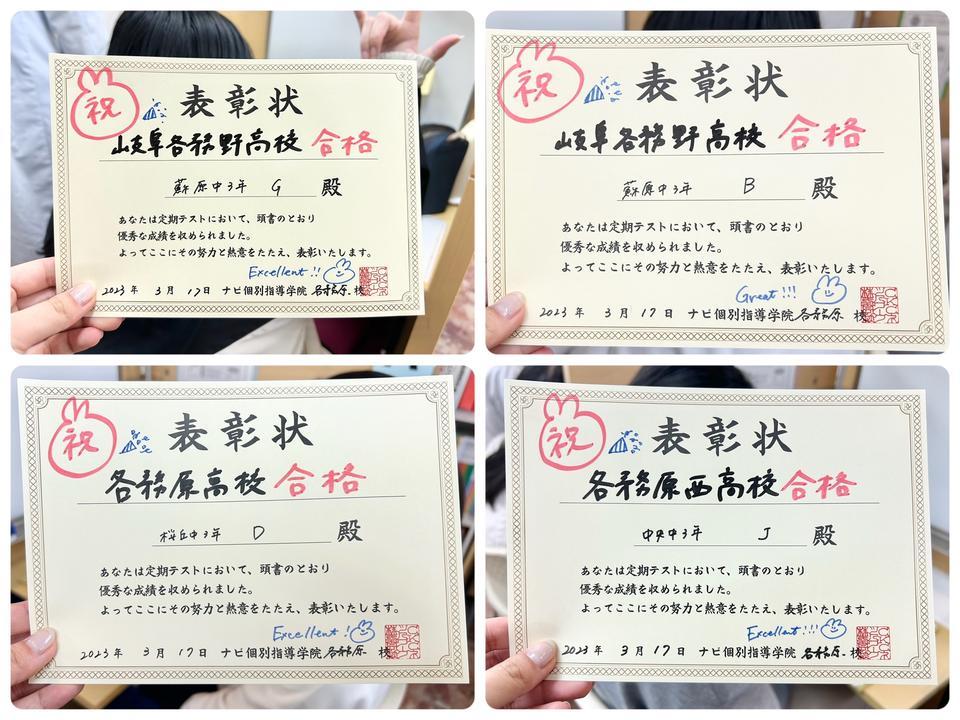 祝
表彰状
岐阜各務野高校 合格
蘇原中3年 G 殿
あなたは定期テストにおいて、頭書のとおり
優秀な成績を収められました。
よってここにその努力と熱意をたたえ、表彰いたします。
Excellent!!
2023年 3月 17日 ナビ個別指導学院 各務原 校
祝
表彰状
岐阜各務野高校 合格
蘇原中3年 B 殿
あなたは定期テストにおいて、頭書のとおり
優秀な成績を収められました。
よってここにその努力と熱意をたたえ、表彰いたします。
Great!!!
2023年 3月 17日 ナビ個別指導学院 各務原 校
祝
表彰状
各務原高校 合格
桜丘中3年 D 殿
あなたは定期テストにおいて、頭書のとおり
優秀な成績を収められました。
よってここにその努力と熱意をたたえ、表彰いたします。
Excellent!
2023年 3月 17日 ナビ個別指導学院 各務原 校
祝
表彰状
各務原西高校 合格
中央中3年 J 殿
あなたは定期テストにおいて、頭書のとおり
優秀な成績を収められました。
よってここにその努力と熱意をたたえ、表彰いたします。
Excellent!!!
2023年 3月 17日 ナビ個別指導学院 各務原 校